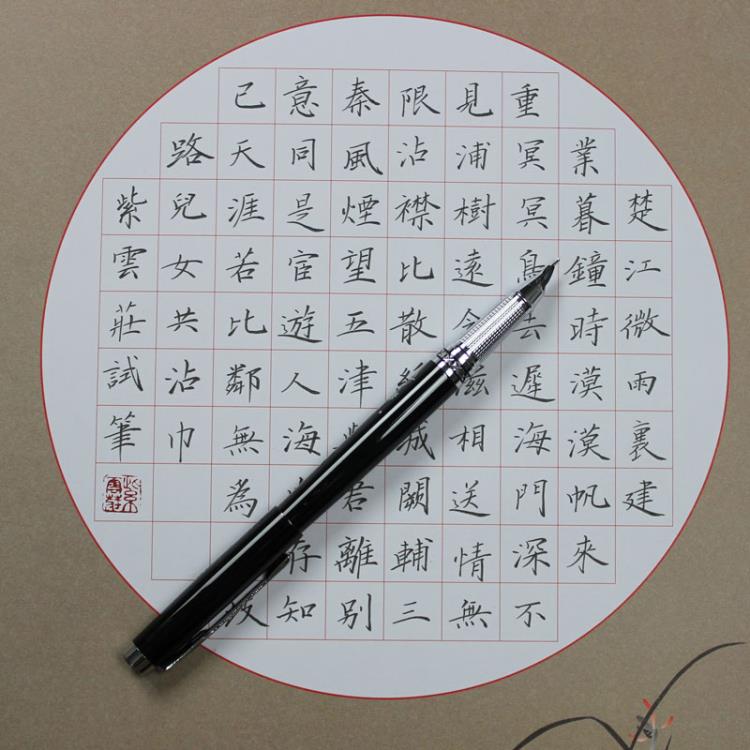 楚江微雨裏建
業暮鐘時漠漠帆來
重冥冥鳥去遲海門深不
見浦樹遠含滋相送情無
限沾襟比散城闕輔三
秦風煙望五津君離別
意同是宦遊人海存知
己天涯若比鄰無為
路兒女共沾巾
紫雲莊試筆